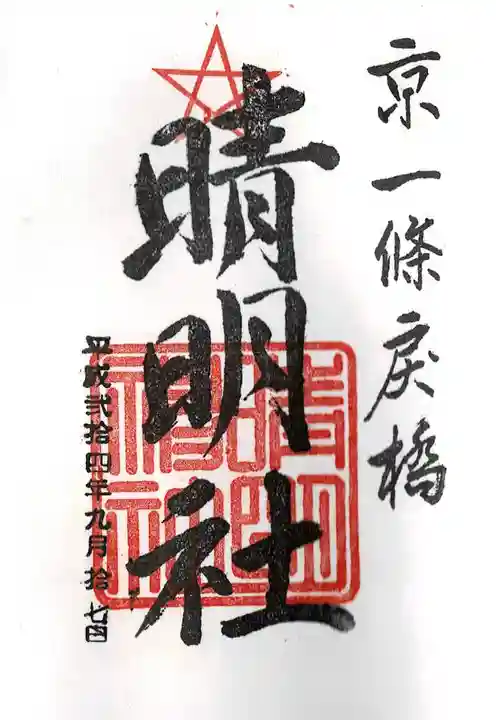 京一條戻橋
晴明社
平成弐拾四年九月拾七日
晴明
神社